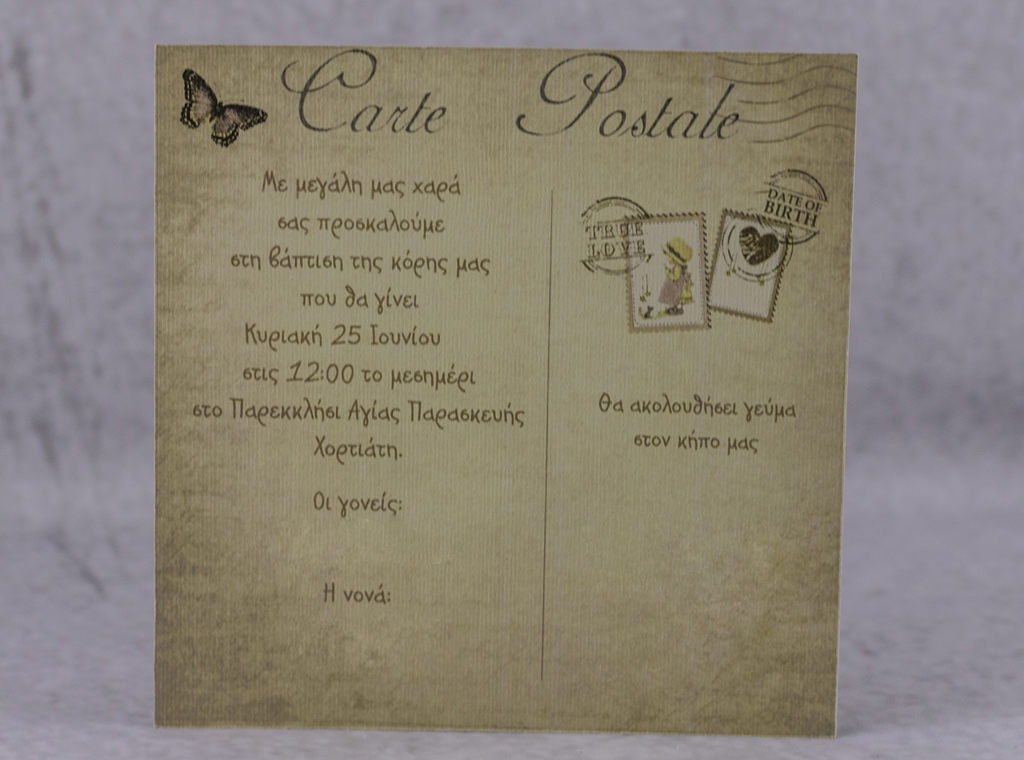 Carte Postale
Με μεγάλη μας χαρά
σας προσκαλούμε
στη βάπτιση της κόρης μας
που θα γίνει
Κυριακή 25 Ιουνίου
στις 12:00 το μεσημέρι
στο Παρεκκλήσι Αγίας Παρασκευής
Χορτιάτη.
Οι γονείς:
Η νονά:
TRUE
LOVE
DATE OF
BIRTH
Θα ακολουθήσει γεύμα
στον κήπο μας